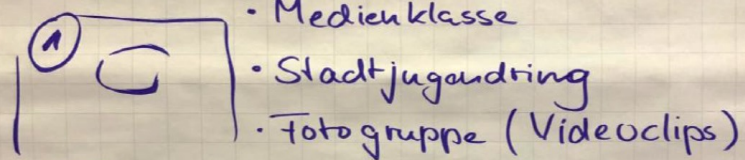 · Medienklasse
1
· Stadtjugendring
· Fotogruppe (Videoclips)